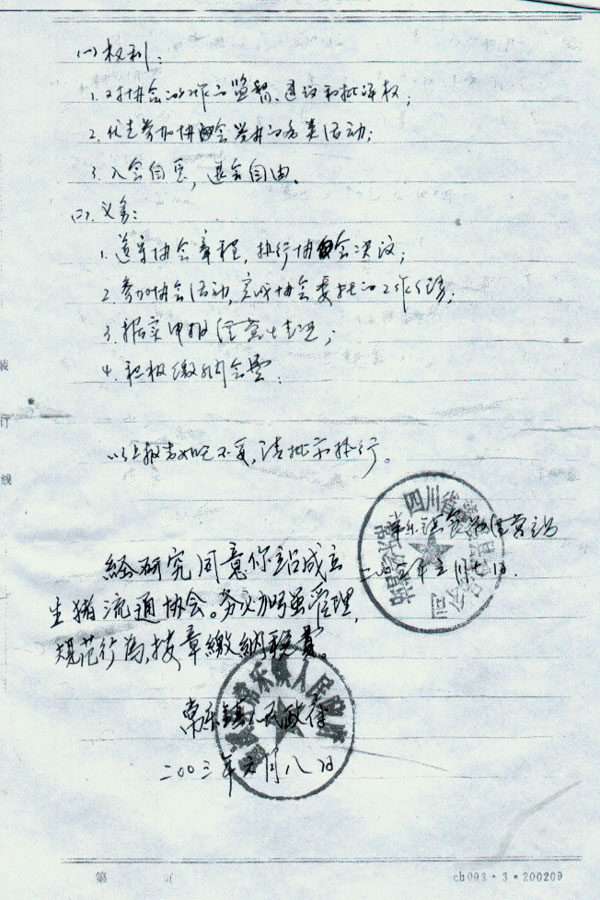 (一)权利:
1.对协会的工作的监督、建议和批评权;
2.优先参加协会举办的各类活动;
3.入会自愿,退会自由。
(二).义务:
1.遵守协会章程,执行协会决议;
2.参加协会活动,完成协会委托的工作任务;
3.据实申报经营情况;
4.积极缴纳会费.
以上报告如无不妥,请批示执行。
四川省
常乐 食品经营站
二〇〇三年 月七日.
经研究同意你站成立
生猪流通协会。务必加强管理,
规范行为,按章缴纳税费。
常乐镇人民政府
二〇〇三年 月八日
装
订
线
第 页
ch093·3·200209